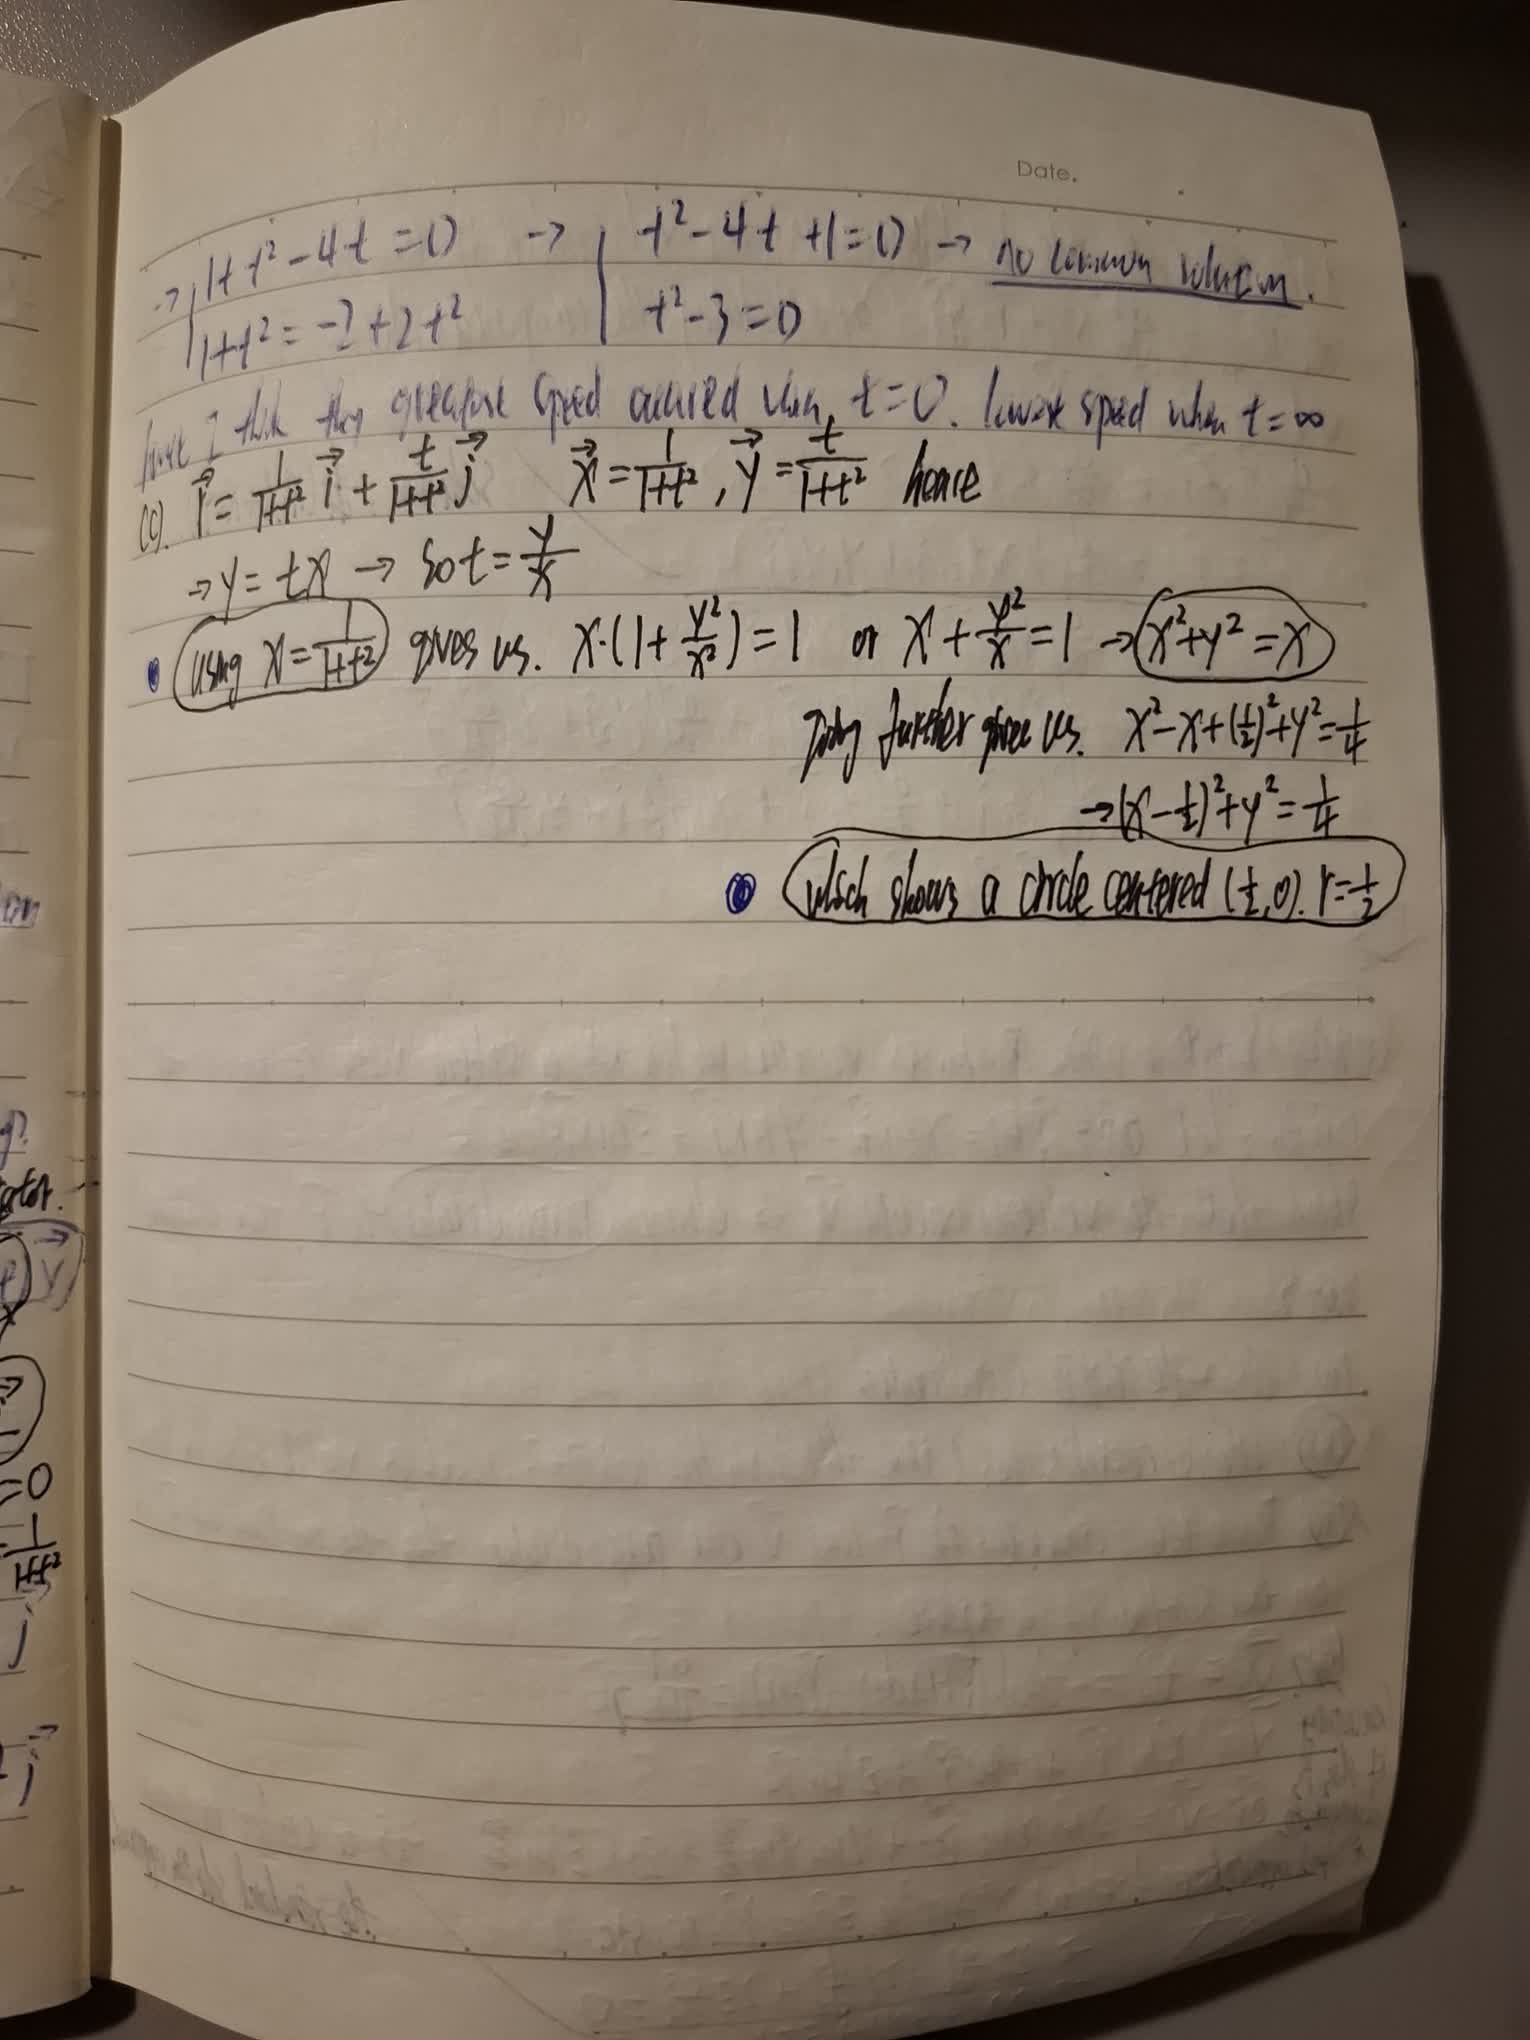 Date.
→ 1+t²-4t=0 → t²-4t+1=0 → no common solution.
1+t²=-2+2t² t²-3=0
I think they greatest speed occured when t=0. lowest speed when t=∞
(c). r⃗= 1/(1+t²) i⃗ + t/(1+t²) j⃗ x⃗=1/(1+t²), y⃗=t/(1+t²) hence
→y=tx → so t=y/x
using x=1/(1+t²) gives us. x·(1+y²/x²)=1 or x+y²/x=1 →x²+y²=x
further gives us. x²-x+(1/2)²+y²=1/4
→(x-1/2)²+y²=1/4
which shows a circle centered (1/2,0). r=1/2